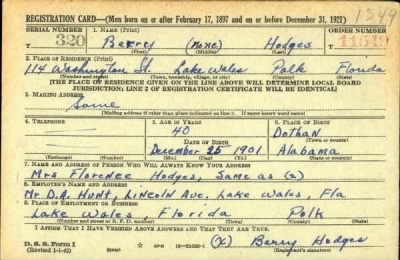 1549
REGISTRATION CARD—(Men born on or after February 17, 1897 and on or before December 31, 1921)
SERIAL NUMBER 1. NAME (Print) ORDER NUMBER
T 320 Berry (None) Hodges 11549
2. PLACE OF RESIDENCE (Print)
114 Washington St. Lake Wales Polk Florida
(Number and street) (Town, township, village, or city) (County) (State)
[THE PLACE OF RESIDENCE GIVEN ON THE LINE ABOVE WILL DETERMINE LOCAL BOARD
JURISDICTION; LINE 2 OF REGISTRATION CERTIFICATE WILL BE IDENTICAL]
3. MAILING ADDRESS
Same
[Mailing address if other than place indicated on line 2. If same insert word same]
4. TELEPHONE 5. AGE IN YEARS 6. PLACE OF BIRTH
40 Dothan
DATE OF BIRTH (Town or county)
December 25 1901 Alabama
(Exchange) (Number) (Mo.) (Day) (Yr.) (State or country)
7. NAME AND ADDRESS OF PERSON WHO WILL ALWAYS KNOW YOUR ADDRESS
Mrs Florence Hodges, Same as (2)
8. EMPLOYER'S NAME AND ADDRESS
Mr D.A. Hunt, Lincoln Ave. Lake Wales, Fla
9. PLACE OF EMPLOYMENT OR BUSINESS
Lake Wales Florida Polk
(Number and street or R. F. D. number) (Town) (County) (State)
I AFFIRM THAT I HAVE VERIFIED ABOVE ANSWERS AND THAT THEY ARE TRUE.
D. S. S. Form 1 (X) Berry Hodges
(Revised 1-1-42) (over)